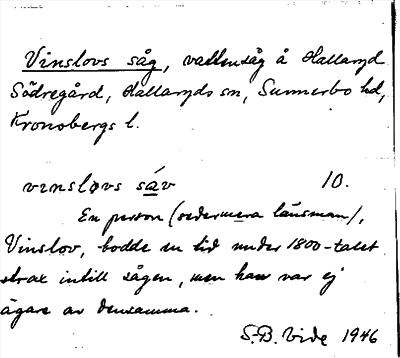 Vinslovs såg, vattensåg å Hallaryd
Södregård, Hallaryds sn, Sunnerbo hd,
Kronobergs l.
vinslovs sáv 10.
En person (sedermera länsman),
Vinslov, bodde en tid under 1800-talet
strax intill sågen, men han var ej
ägare av densamma.
S.B. Vide 1946